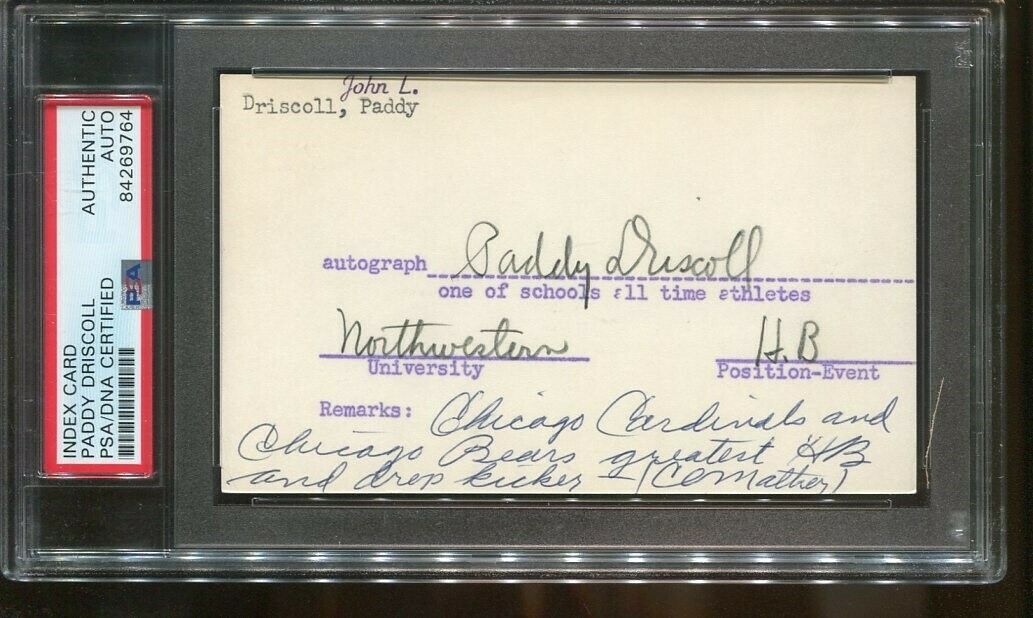 INDEX CARD
PADDY DRISCOLL
PSA/DNA CERTIFIED
AUTHENTIC
AUTO
84269764
PSA
John L.
Driscoll, Paddy
autograph Paddy Driscoll
one of schools all time athletes
Northwestern H.B
University Position-Event
Remarks: Chicago Cardinals and
Chicago Bears greatest HB
and drop kicker - (COMather)